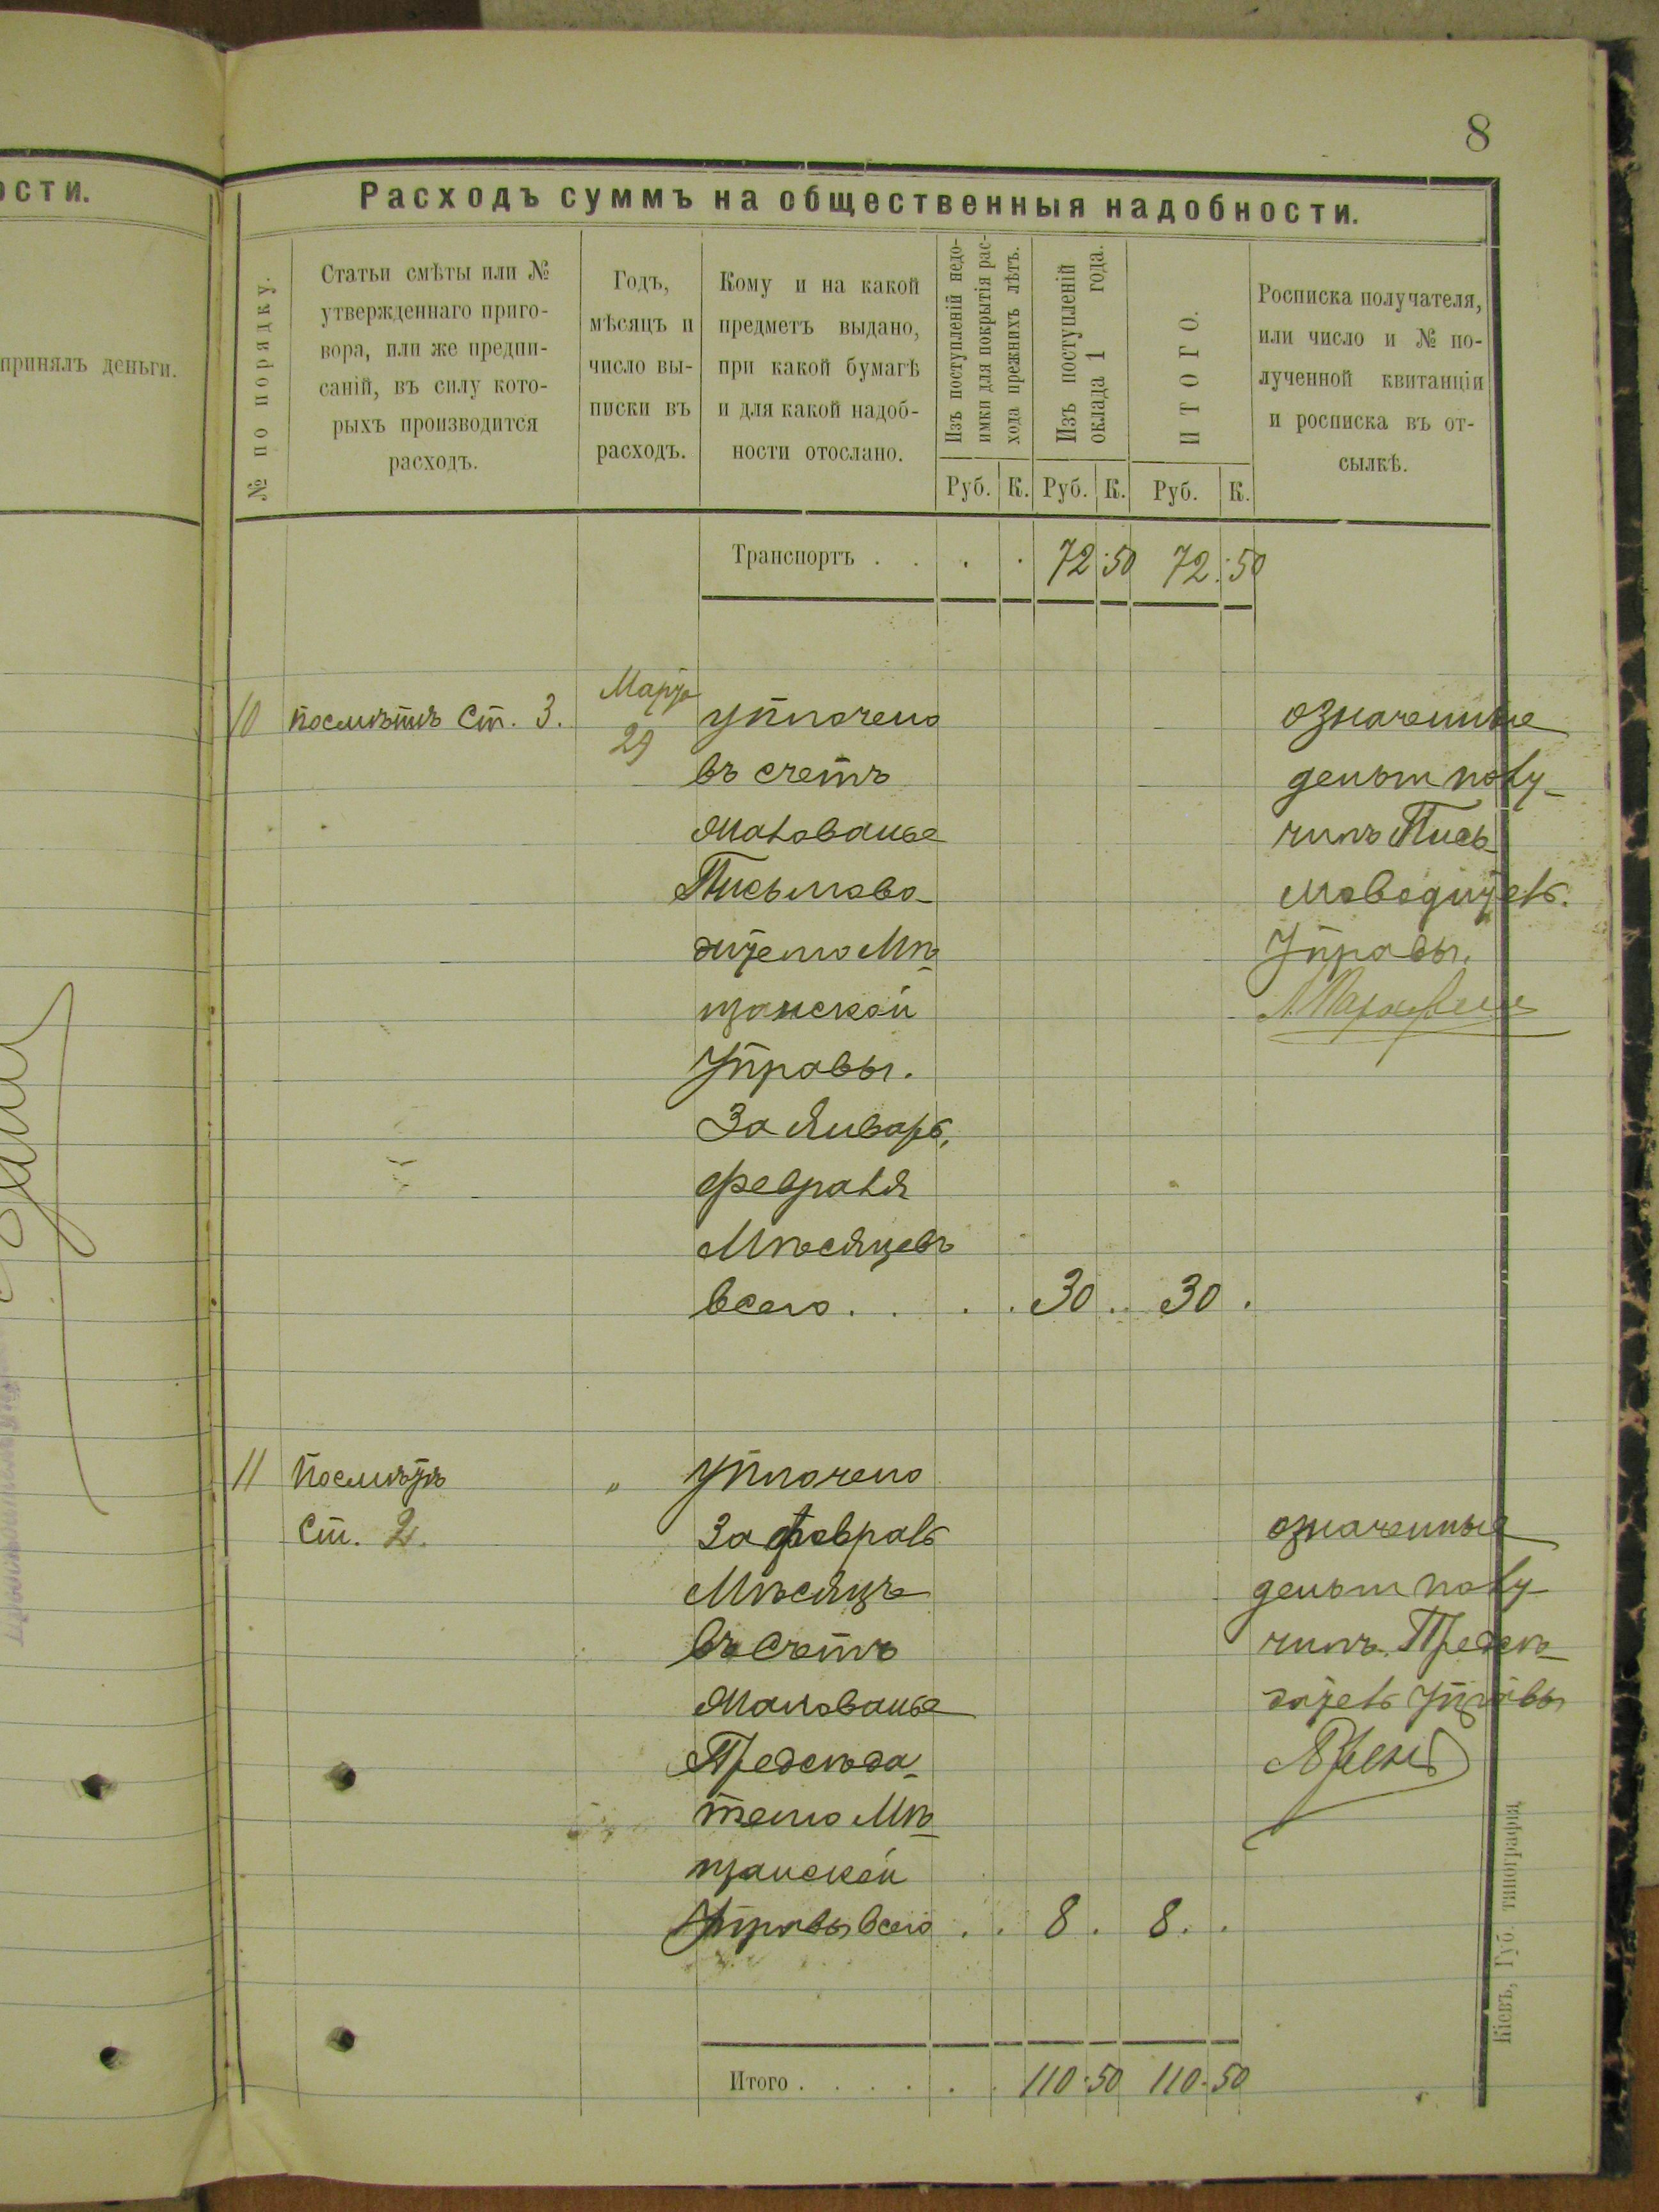 8
ости.
принялъ деньги.
Расходъ суммъ на общественныя надобности.
№ по порядку.
Статьи смѣты или №
утвержденнаго приго-
вора, или же предпи-
саній, въ силу кото-
рыхъ производится
расходъ.
Годъ,
мѣсяцъ и
число вы-
писки въ
расходъ.
Кому и на какой
предметъ выдано,
при какой бумагѣ
и для какой надоб-
ности отослано.
Изъ поступленій недо-
имки для покрытія рас-
хода прежнихъ лѣтъ.
Изъ поступленій
оклада 1 года.
ИТОГО.
Росписка получателя,
или число и № по-
лученной квитанціи
и росписка въ от-
сылкѣ.
Руб. К. Руб. К. Руб. К.
Транспортъ . . . . 72:50 72:50
10 посмѣтѣ Ст. 3.
Марта
29
уплочено
въ счетъ
жалованье
Письмово-
дителю Мѣ-
щанской
Управы.
За Январь,
февраля
Мѣсяцевъ
всего . . . . 30 . . 30 .
означенные
деньги полу-
чилъ Пись-
моводитель.
Управы.
11 Посмѣтѣ
Ст. 2.
„
уплочено
За февраль
Мѣсяцъ
въ счетъ
жалованье
Предсѣда-
телю Мѣ-
щанской
Управы всего . . 8 . 8 . .
означенные
деньги полу-
чилъ Предсѣ-
датель Управы
Итого . . . . . . . 110:50 110.50
Кіевъ, Губ. типографія